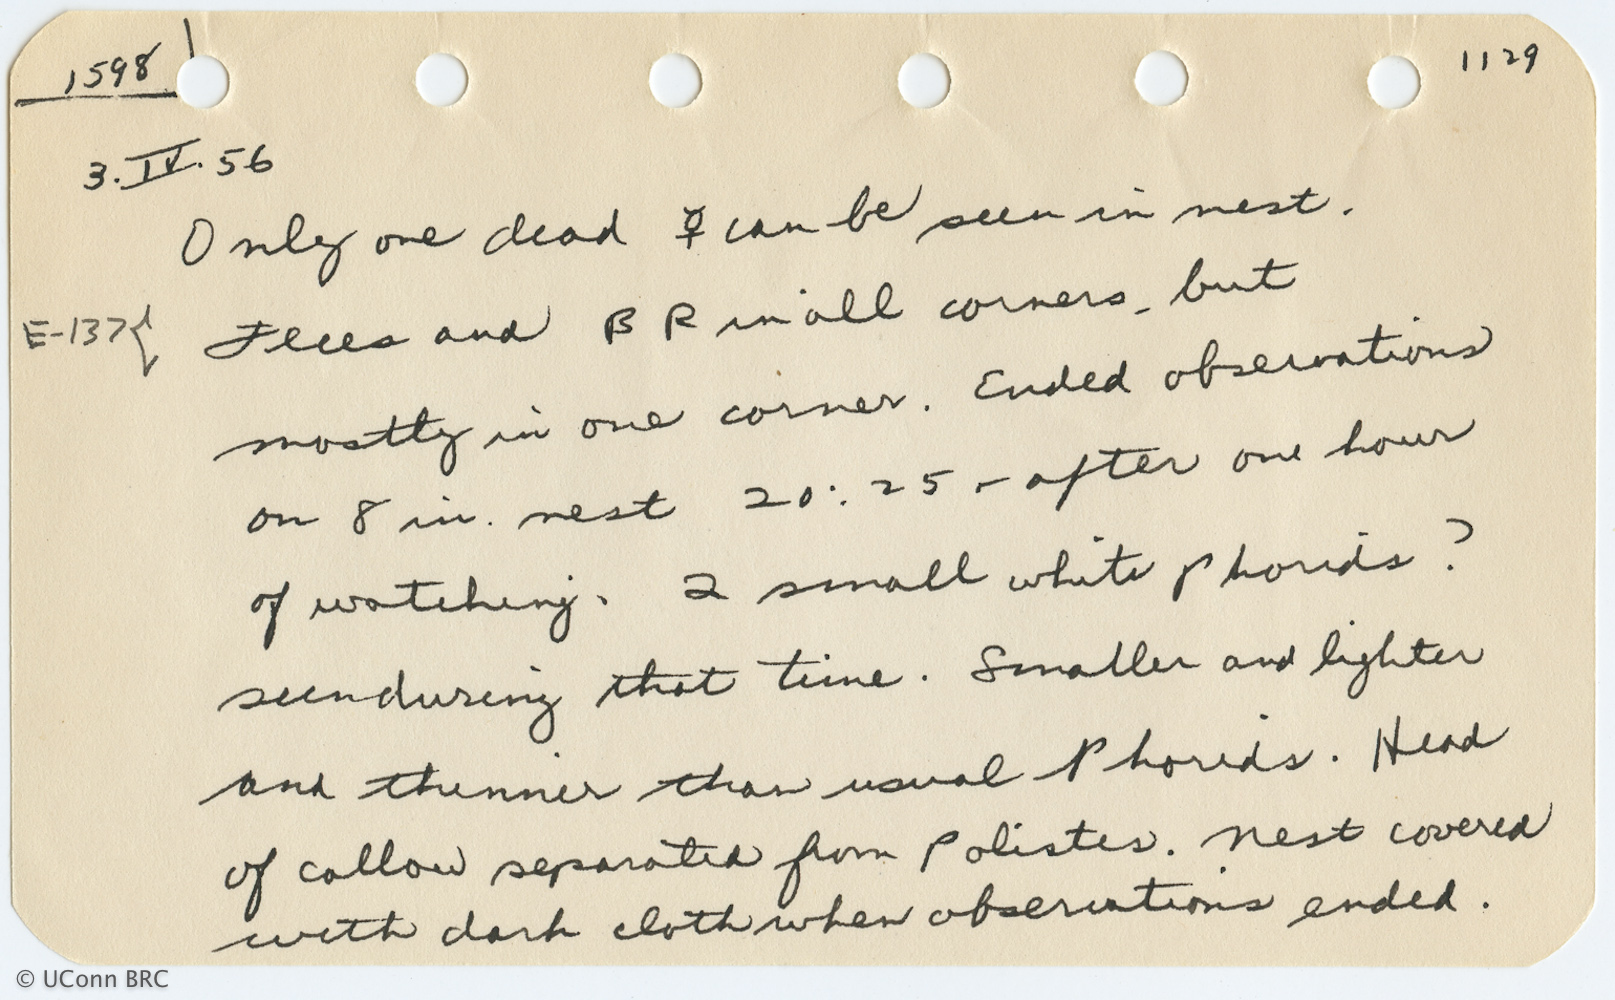 1598
1129
3.IV.56
Only one dead ☿ can be seen in nest.
E-137{ Feces and B R in all corners, but
mostly in one corner. Ended observations
on 8 in. nest 20:25 - after one hour
of watching. 2 small white Phorids ?
seen during that time. Smaller and lighter
and thinner than usual Phorids. Head
of callow separated from Polistes. Nest covered
with dark cloth when observations ended.
© UConn BRC